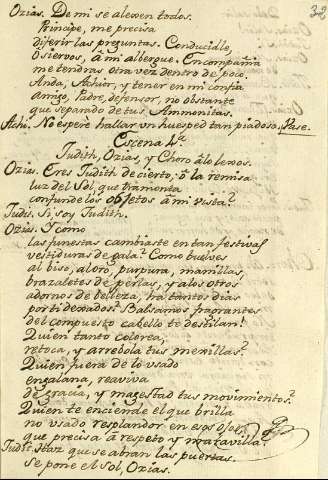 32
Ozias. De mi se alexen todos.
Principe, me precisa
diferir las preguntas. Conducidle,
ó siervos, â mi albergue. En compañia
me tendras otra vez dentro de poco.
Anda, Achior, y tener en mi confia
Amigo, Padre, defensor, no obstante
que separado de tus Ammonitas.
Achi. No esperè hallar un huesped tan piadoso. Vase.
Escena 4ª
Judith, Ozias, y Choro â lo lexos.
Ozias. Eres Judith de cierto, ô la remisa
luz del Sol, que tramonta
confunde los objetos â mi vista?
Judi. Si, soy Judith.
Ozias. Y como
las funestas cambiaste en tan festivas
vestiduras de gala? Como buelves
al biso, al oro, purpura, manillas,
brazaletes de perlas, y a los otros
adornos de belleza, ha tantos dias
por ti dexados? Balsamos fragrantes
del compuesto cabello te destilan!
Quien tanto colorea,
retoca, y arrebola tus mexillas?
Quien fuera de lo usado
engalana, reaviva
de gracia, y magestad tus movimientos?
Quien te enciende el que brilla
no usado resplandor en esos ojos,
que precisa â respeto y maravilla?
Judit. Haz que se abran las puertas.
se pone el Sol, Ozias.